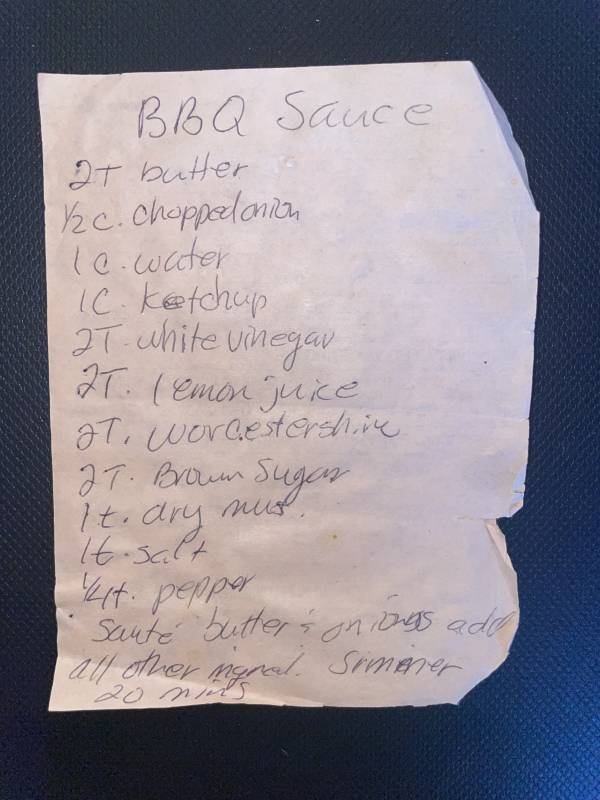 BBQ Sauce
2T butter
1/2 c. chopped onion
1 c. water
1C. Ketchup
2T. white vinegar
2T. lemon juice
2T. worcestershire
2T. Brown Sugar
1t. dry mus.
1t. salt
1/4t. pepper
Sauté butter & onions add
all other ingred. Simmer
20 mins